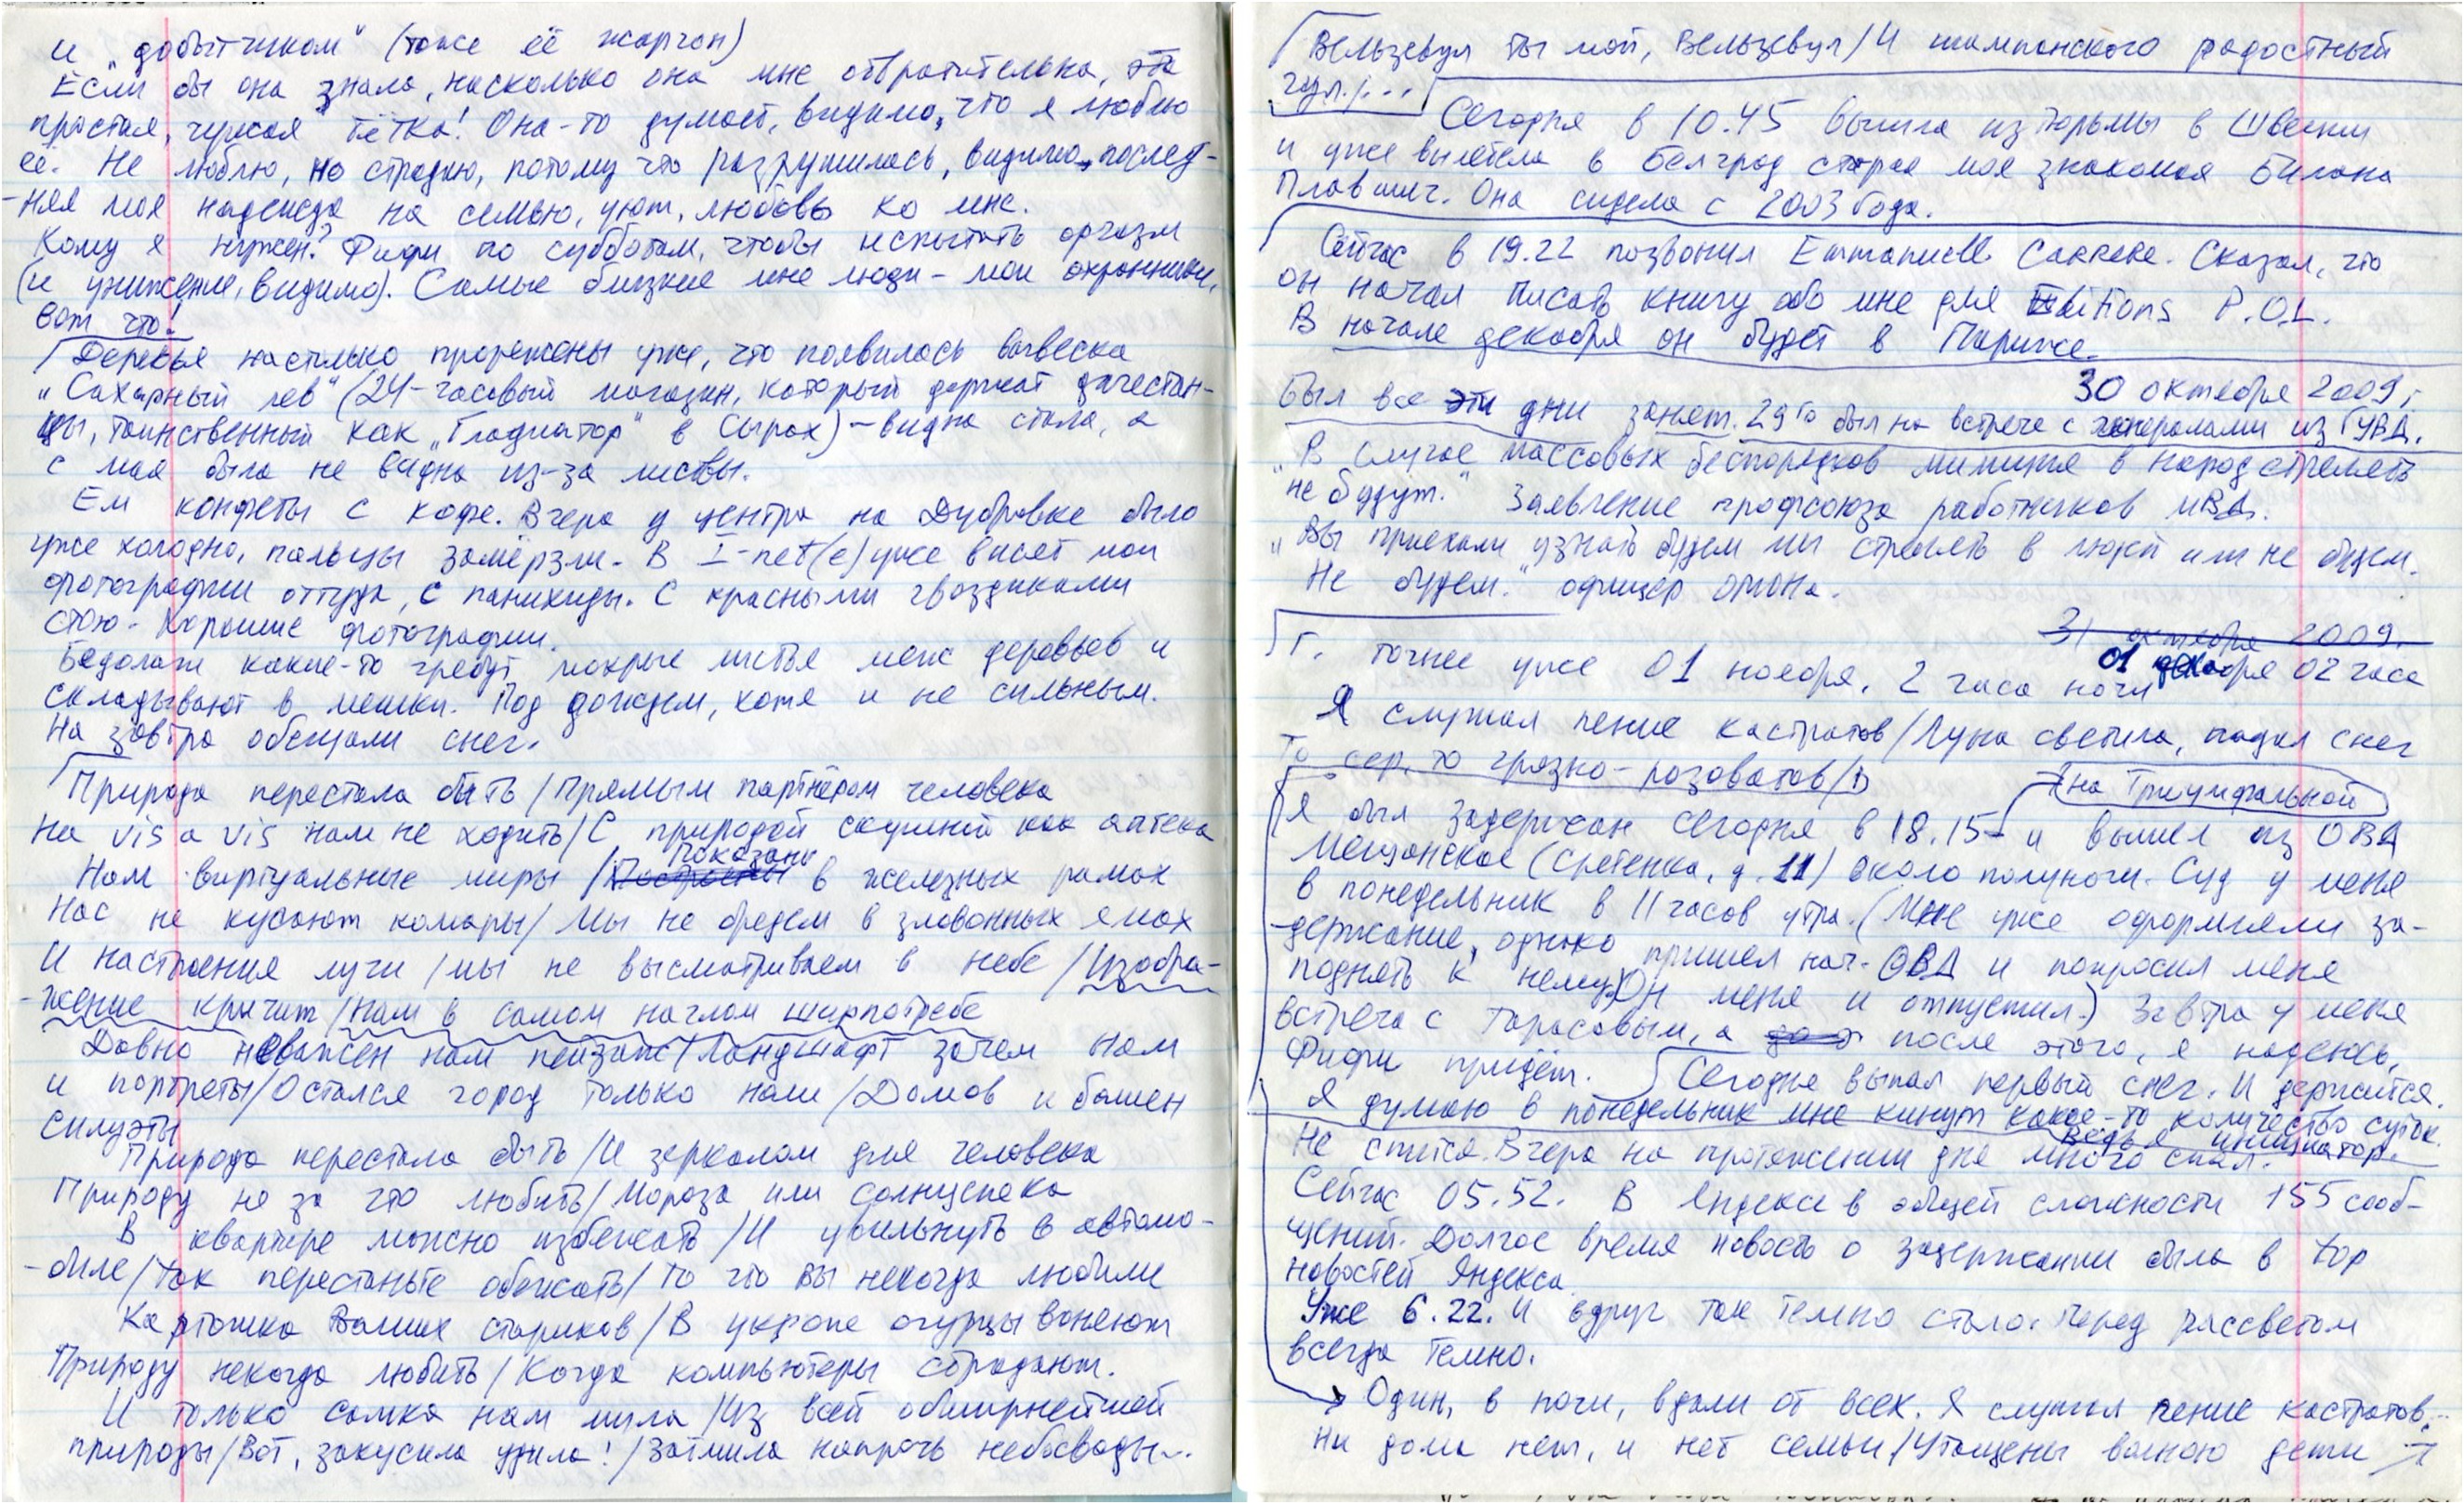 и „добытчиком" (тоже её жаргон)
Если бы она знала, насколько она мне отвратительна, эта
простая, чужая тётка! Она-то думает, видимо, что я люблю
её. Не люблю, но страдаю, потому что разрушилась, видимо, послед-
-няя моя надежда на семью, уют, любовь ко мне.
Кому я нужен? Фифи по субботам, чтобы испытать оргазм
(и унижение, видимо). Самые близкие мне люди – мои охранники,
вот что!
Деревья настолько прорежены уже, что появилась вывеска
„Сахарный лев" (24-часовый магазин, который держат дагестан-
цы, таинственный как „Гладиатор" в Сырах) – видна стала, а
с мая была не видна из-за листвы.
Ем конфеты с кофе. Вчера у центра на Дубровке было
уже холодно, пальцы замёрзли. В I-net(e) уже висят мои
фотографии оттуда, с панихиды. С красными гвоздиками
стою. Хорошие фотографии.
Бедолаги какие-то гребут мокрые листья меж деревьев и
складывают в мешки. Под дождем, хотя и не сильным.
На завтра обещали снег.
Природа перестала быть / Прямым партнёром человека
На vis a vis нам не ходить / С природой скушной как аптека
Нам виртуальные миры / Показаны в железных рамах
Нас не кусают комары / Мы не бредем в зловонных ямах
И настроения лучи / мы не высматриваем в небе / Изобра-
-жение кричит / Нам в самом наглом ширпотребе
Давно неважен нам пейзаж / Ландшафт зачем нам
и портреты / Остался город только наш / Домов и башен
силуэты
Природа перестала быть / И зеркалом для человека
Природу не за что любить / Мороза или солнцепека
В квартире можно избежать / И увильнуть в автомо-
-биле / Так перестаньте обожать / То что вы некогда любили
Картошка Ваших стариков / В укропе огурцы воняют
Природу некогда любить / Когда компьютеры страдают.
И только самка нам мила / Из всей обширнейшей
природы / Вот, закусила удила! / Затмила напрочь небосводы...
Вельзевул ты мой, Вельзевул / И шампанского радостный
гул /...
Сегодня в 10.45 вышла из тюрьмы в Швеции
и уже вылетела в Белград старая моя знакомая Биляна
Плавшич. Она сидела с 2003 года.
Сейчас в 19.22 позвонил Emmanuell Carrere. Сказал, что
он начал писать книгу обо мне для Editions P.O.L.
В начале декабря он будет в Париже.
30 октября 2009 г.
Был все эти дни занят. 29го был на встрече с генералами из ГУВД.
„В случае массовых беспорядков милиция в народ стрелять
не будут." Заявление профсоюза работников МВД.
„Вы приехали узнать будем мы стрелять в людей или не будем.
Не будем." офицер ОМОНа.
31 октября 2009.
01 декабря 02 часа
Г. точнее уже 01 ноября, 2 часа ночи
Я слушал пение кастратов / Луна светила, падал снег
То сер, то грязно-розоватов /
на Триумфальной
Я был задержан сегодня в 18.15 и вышел из ОВД
Мещанское (Сретенка, д. 11) около полуночи. Суд у меня
в понедельник в 11 часов утра. (Мне уже оформляли за-
-держание, однако пришел нач. ОВД и попросил меня
поднять к нему. Он меня и отпустил.) Завтра у меня
встреча с Тарасовым, а после этого, я надеюсь,
Фифи придёт. Сегодня выпал первый снег. И держится.
Я думаю в понедельник мне кинут какое-то количество суток.
Ведь я инициатор.
Не спится. Вчера на протяжении дня много спал.
Сейчас 05.52. В Яндексе в общей сложности 155 сооб-
щений. Долгое время новость о задержании была в top
новостей Яндекса.
Уже 6.22. И вдруг так темно стало. Перед рассветом
всегда темно.
Один, в ночи, вдали от всех. Я слушал пение кастратов...
Ни дома нет, и нет семьи / Утащены волною дети